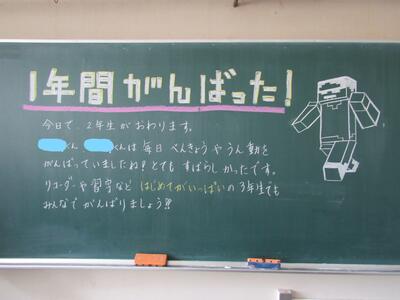 1年間がんばった!
今日で、2年生がおわります。
くん くんは毎日べんきょうやうん動を
がんばっていましたね!とてもすばらしかったです。
リコーダーや習字など はじめてがいっぱいの3年生でも
みんなでがんばりましょう!!